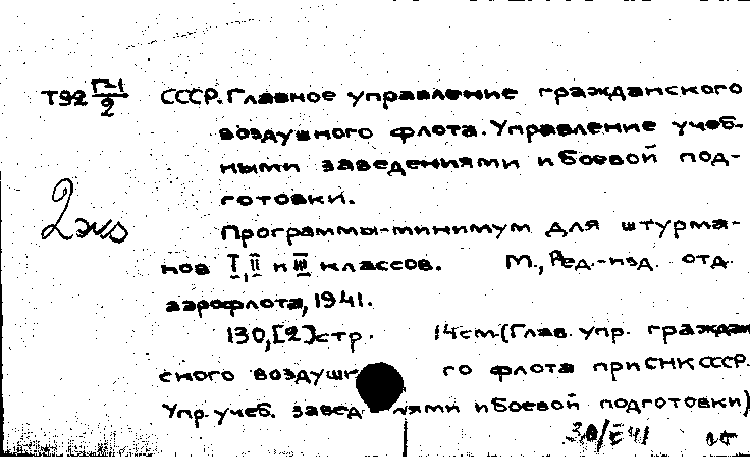 Т92 Г-1/2 СССР. Главное управление гражданского
воздушного флота. Управление учеб-
ными заведениями и боевой под-
готовки.
2 экз
Программы-минимум для штурма-
нов I, II и III классов. М., Ред.-изд. отд.
аэрофлота, 1941.
130,[2]стр. 14см.(Глав. упр. граждан
ского воздушн го флота при СНК СССР.
Упр. учеб. завед лями и боевой подготовки)